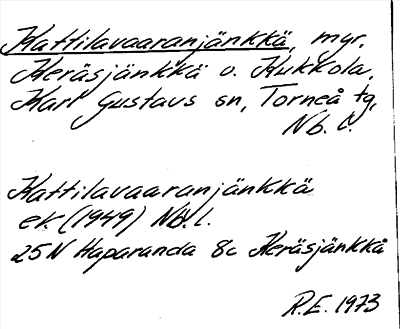 Kattilavaaranjänkkä, myr,
Keräsjänkkä o. Kukkola,
Karl Gustavs sn, Torneå tg,
Nb. l.
Kattilavaaranjänkkä
ek. (1949) Nb. l.
25N Haparanda 8c Keräsjänkkä
R.E. 1973